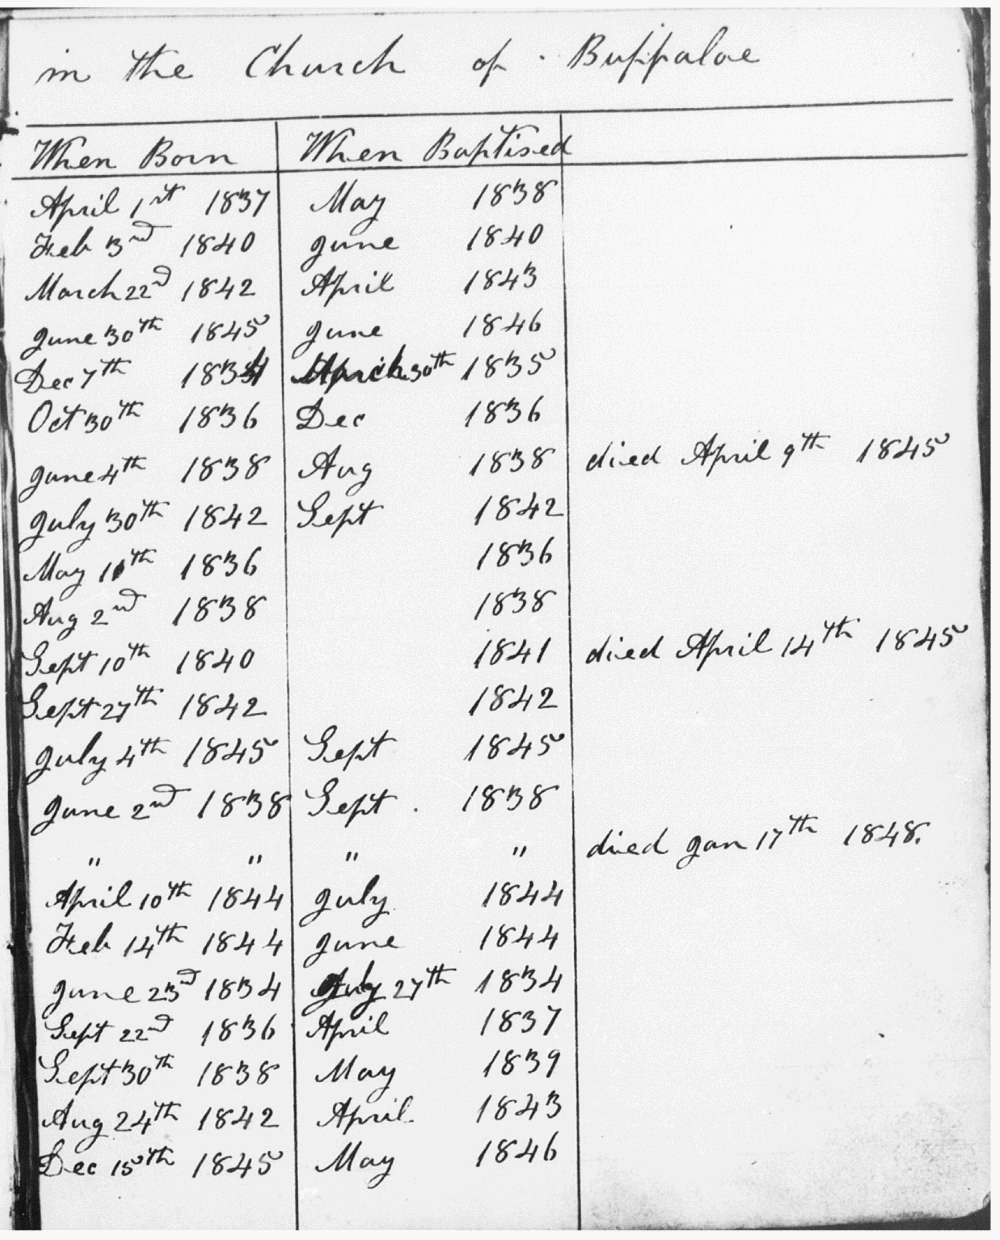 in the Church of Buffaloe
When Born When Baptised
April 1st 1837 May 1838
Feb 3rd 1840 June 1840
March 22d 1842 April 1843
June 30th 1845 June 1846
Dec 7th 1834 March 30th 1835
Oct 30th 1836 Dec 1836
June 4th 1838 Aug 1838 died April 9th 1845
July 30th 1842 Sept 1842
May 11th 1836 1836
Aug 2nd 1838 1838
Sept 10th 1840 1841 died April 14th 1845
Sept 27th 1842 1842
July 4th 1845 Sept 1845
June 2nd 1838 Sept. 1838
" " " " died Jan 17th 1848.
April 10th 1844 July 1844
Feb 14th 1844 June 1844
June 23d 1834 July 27th 1834
Sept 22d 1836 April 1837
Sept 30th 1838 May 1839
Aug 24th 1842 April 1843
Dec 15th 1845 May 1846